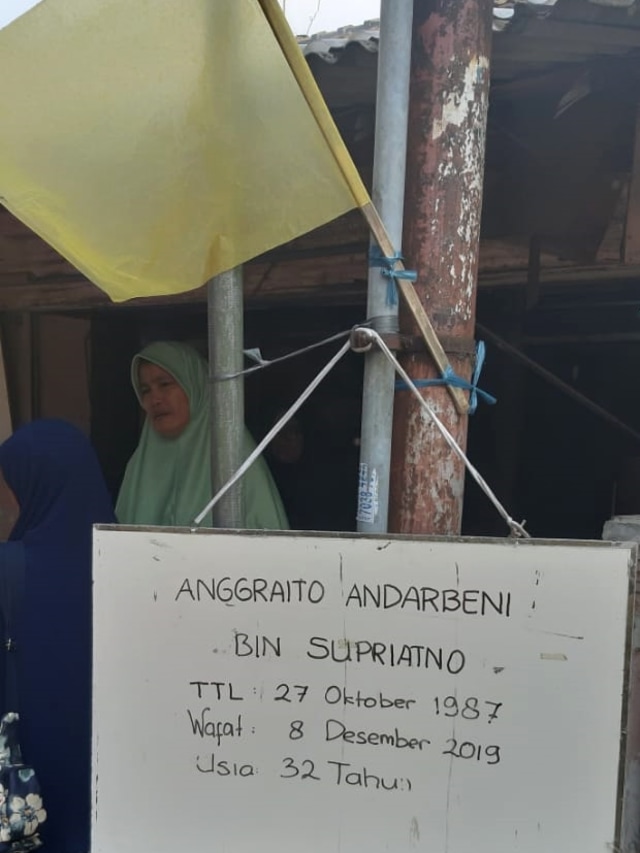 ANGGRAITO ANDARBENI
BIN SUPRIATNO
TTL : 27 Oktober 1987
Wafat : 8 Desember 2019
Usia : 32 Tahun